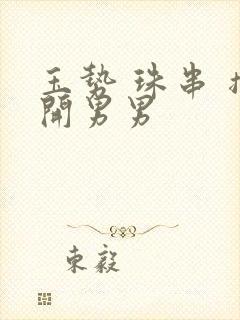 玉势 珠串 扌
開男男
東毅